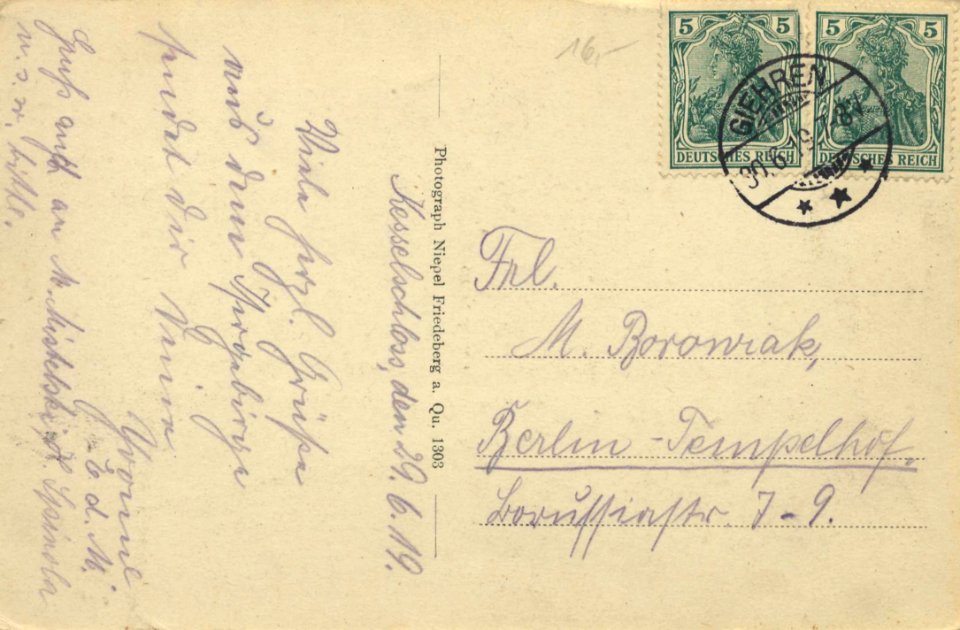 5 5 5 5
DEUTSCHES REICH DEUTSCHES REICH
GIEHREN
30.6.19. 7-8V
16,-
Photograph Niepel Friedeberg a. Qu. 1303
Kesselschloss, den 29.6.19.
Viele herzl. Grüße
aus dem Isergebirge
sendet dir Deine
Yvonne
E. d. M.
Gruß auch an
u. s. w. bitte.
Frl.
M. Borowiak,
Berlin-Tempelhof.
Borussiastr. 7-9.